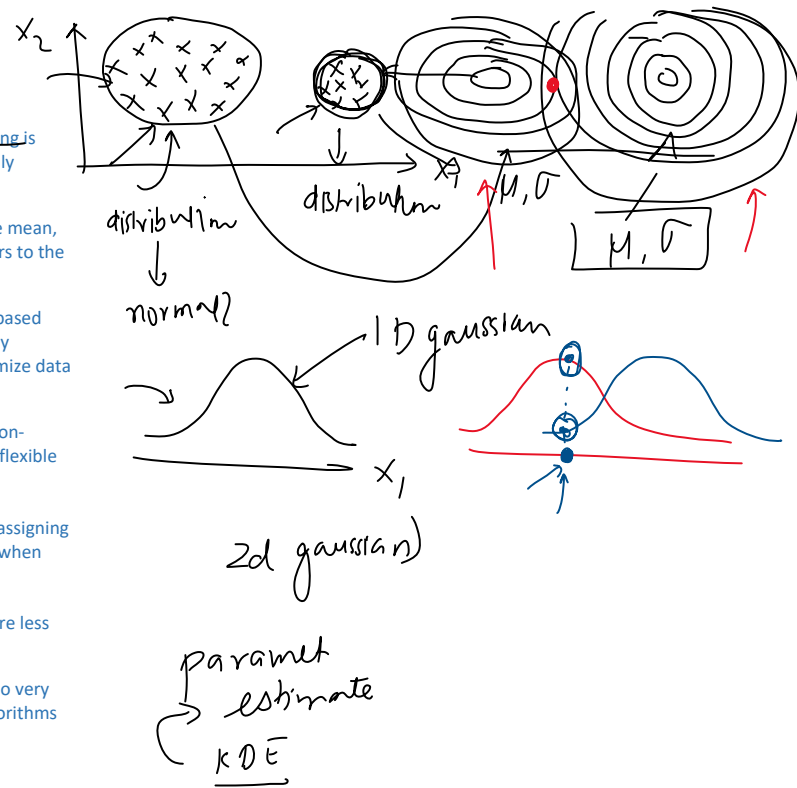 X2
ng is
ly
e mean,
rs to the
based
y
mize data
on-
flexible
assigning
when
re less
o very
orithms
X1
distribution
distribution
μ, σ
μ, σ
normal?
1D gaussian
X1
2d gaussian)
paramet
estimate
KDE